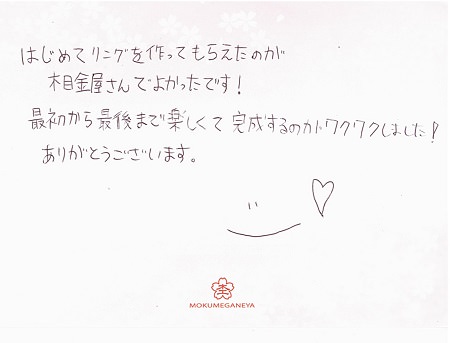 はじめてリングを作ってもらえたのが
木目金屋さんでよかったです！
最初から最後まで楽しくて完成するのがワクワクしました！
ありがとうございます。
MOKUMEGANEYA